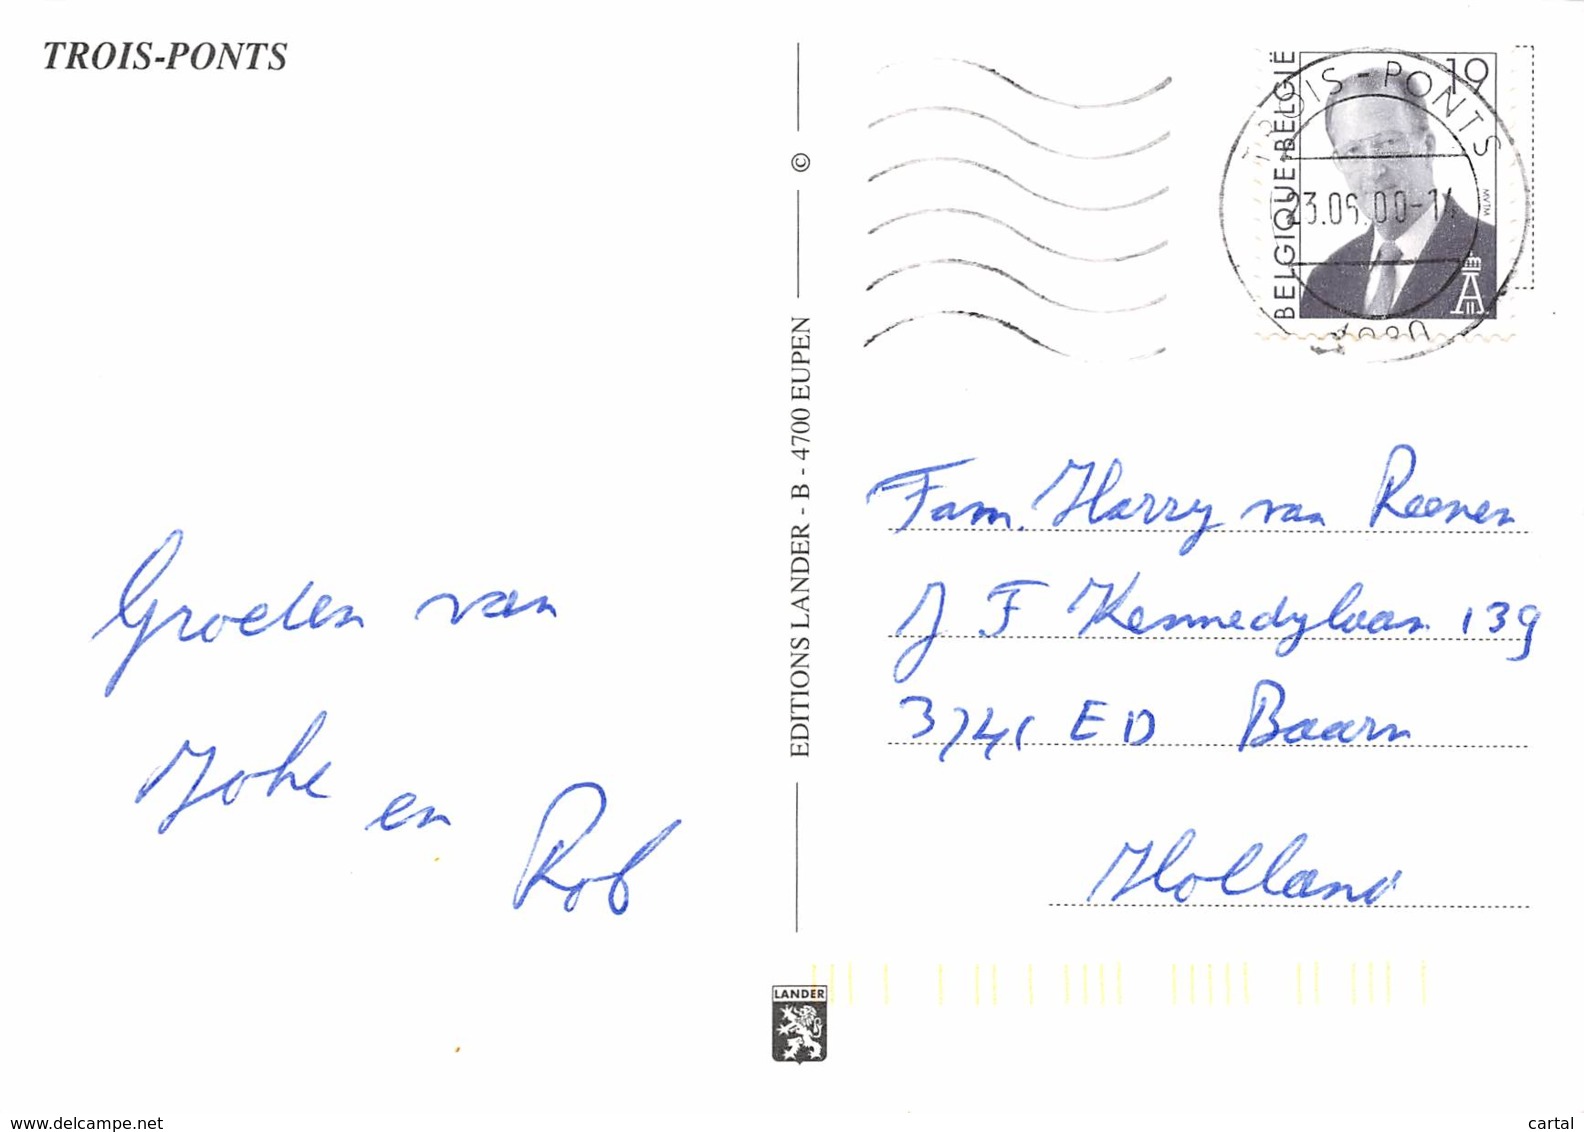 TROIS-PONTS
Groeten van
Joke en
Rob
EDITIONS LANDER - B - 4700 EUPEN ©
BELGIQUE-BELGIË
19
MVTM
TROIS-PONTS
23.09.00-14
4980
Fam. Harry van Reenen
J F Kennedylaan 139
3741 ED Baarn
Holland
LANDER
www.delcampe.net
cartal